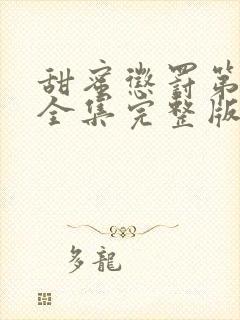 甜蜜懲罰第
全集完整版
多龍